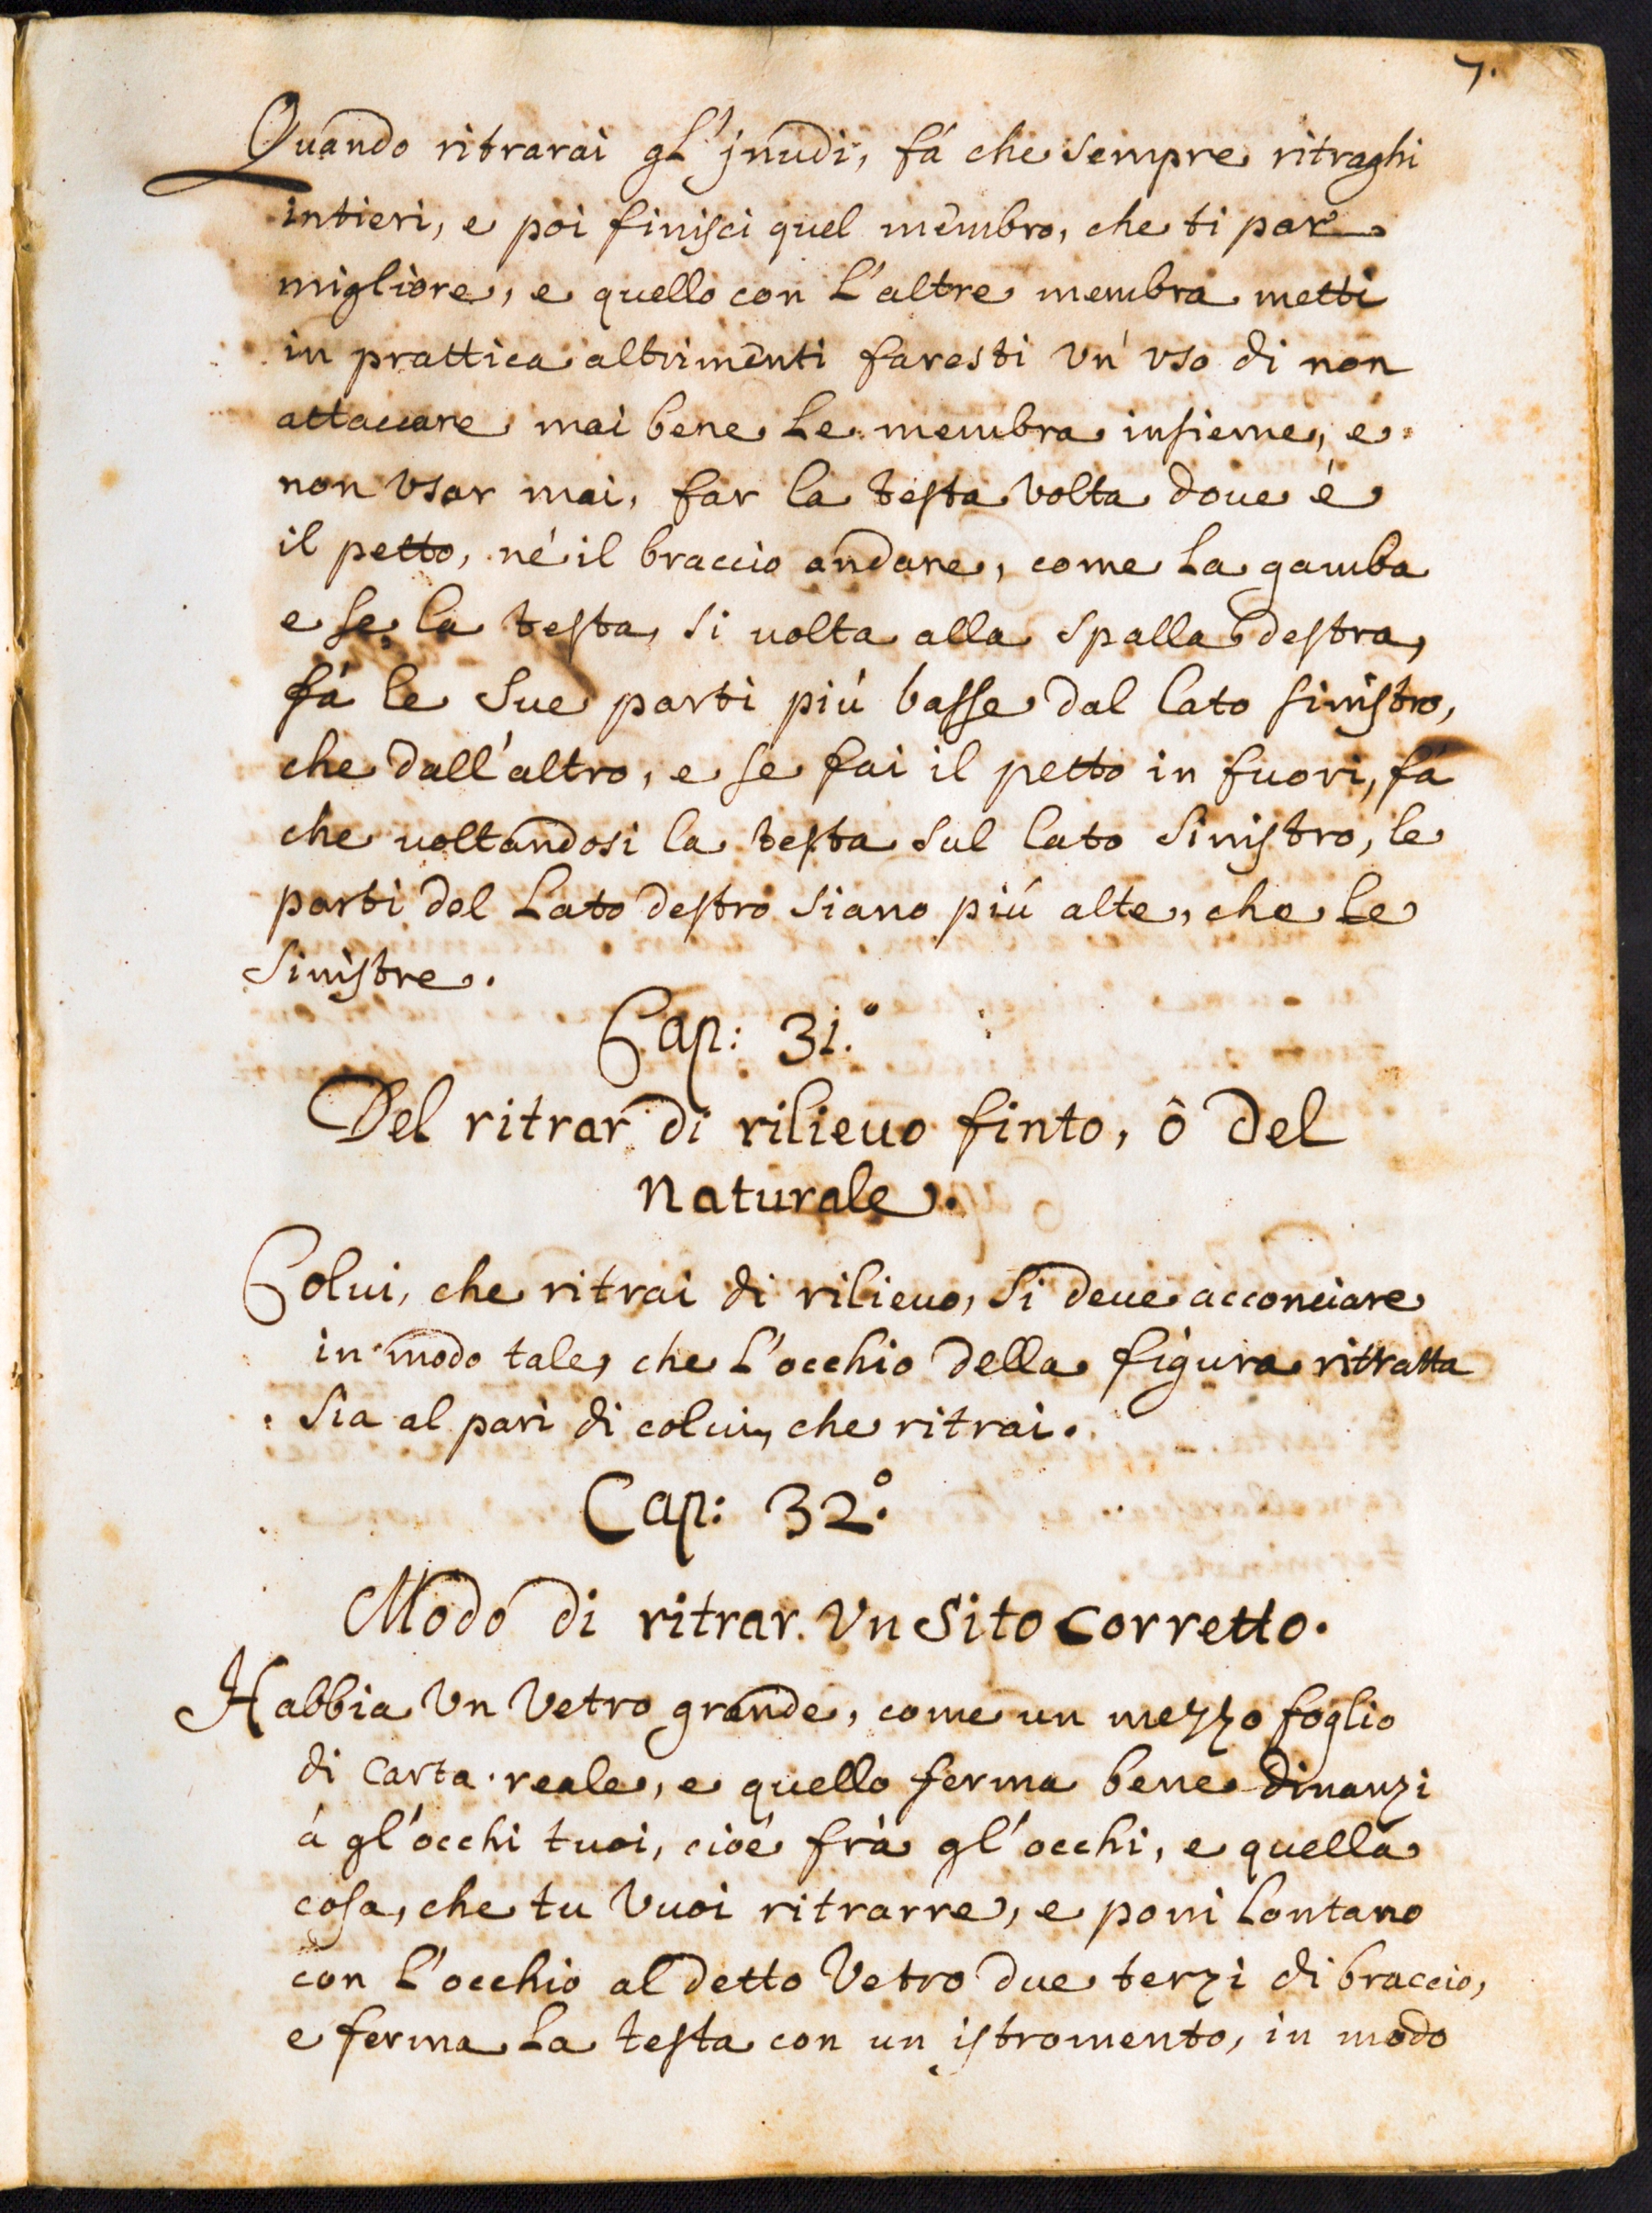 7.
Quando ritrarai gl'jnudi, fá che sempre ritraghi
intieri, e poi finisci quel membro, che ti par
migliore, e quello con l'altre membra metti
in prattica altrimenti faresti vn' vso di non
attaccare mai bene le membra insieme, e
non vsar mai, far la testa volta doue é
il petto, né il braccio andare, come la gamba
e se la testa, si uolta alla spalla destra,
fá le sue parti piú basse dal lato sinistro,
che dall'altro, e se fai il petto in fuori, fá
che uoltandosi la testa sul lato sinistro, le
parti del lato destro siano piú alte, che le
sinistre.
Cap: 31.º
Del ritrar di rilieuo finto, ô del
naturale.
Colui, che ritrai di rilieuo, si deue acconciare
in modo tale, che l'occhio della figura rittratta
sia al pari di colui, che ritrai.
Cap: 32º.
Modo di ritrar. vn sito corretto.
Habbia vn vetro grande, come un mezzo foglio
di carta reale, e quello ferma bene dinanzi
á gl'occhi tuoi, cioé frà gl'occhi, e quella
cosa, che tu vuoi ritrarre, e poni lontano
con l'occhio al detto vetro due terzi di braccio,
e ferma la testa con un istromento, in modo